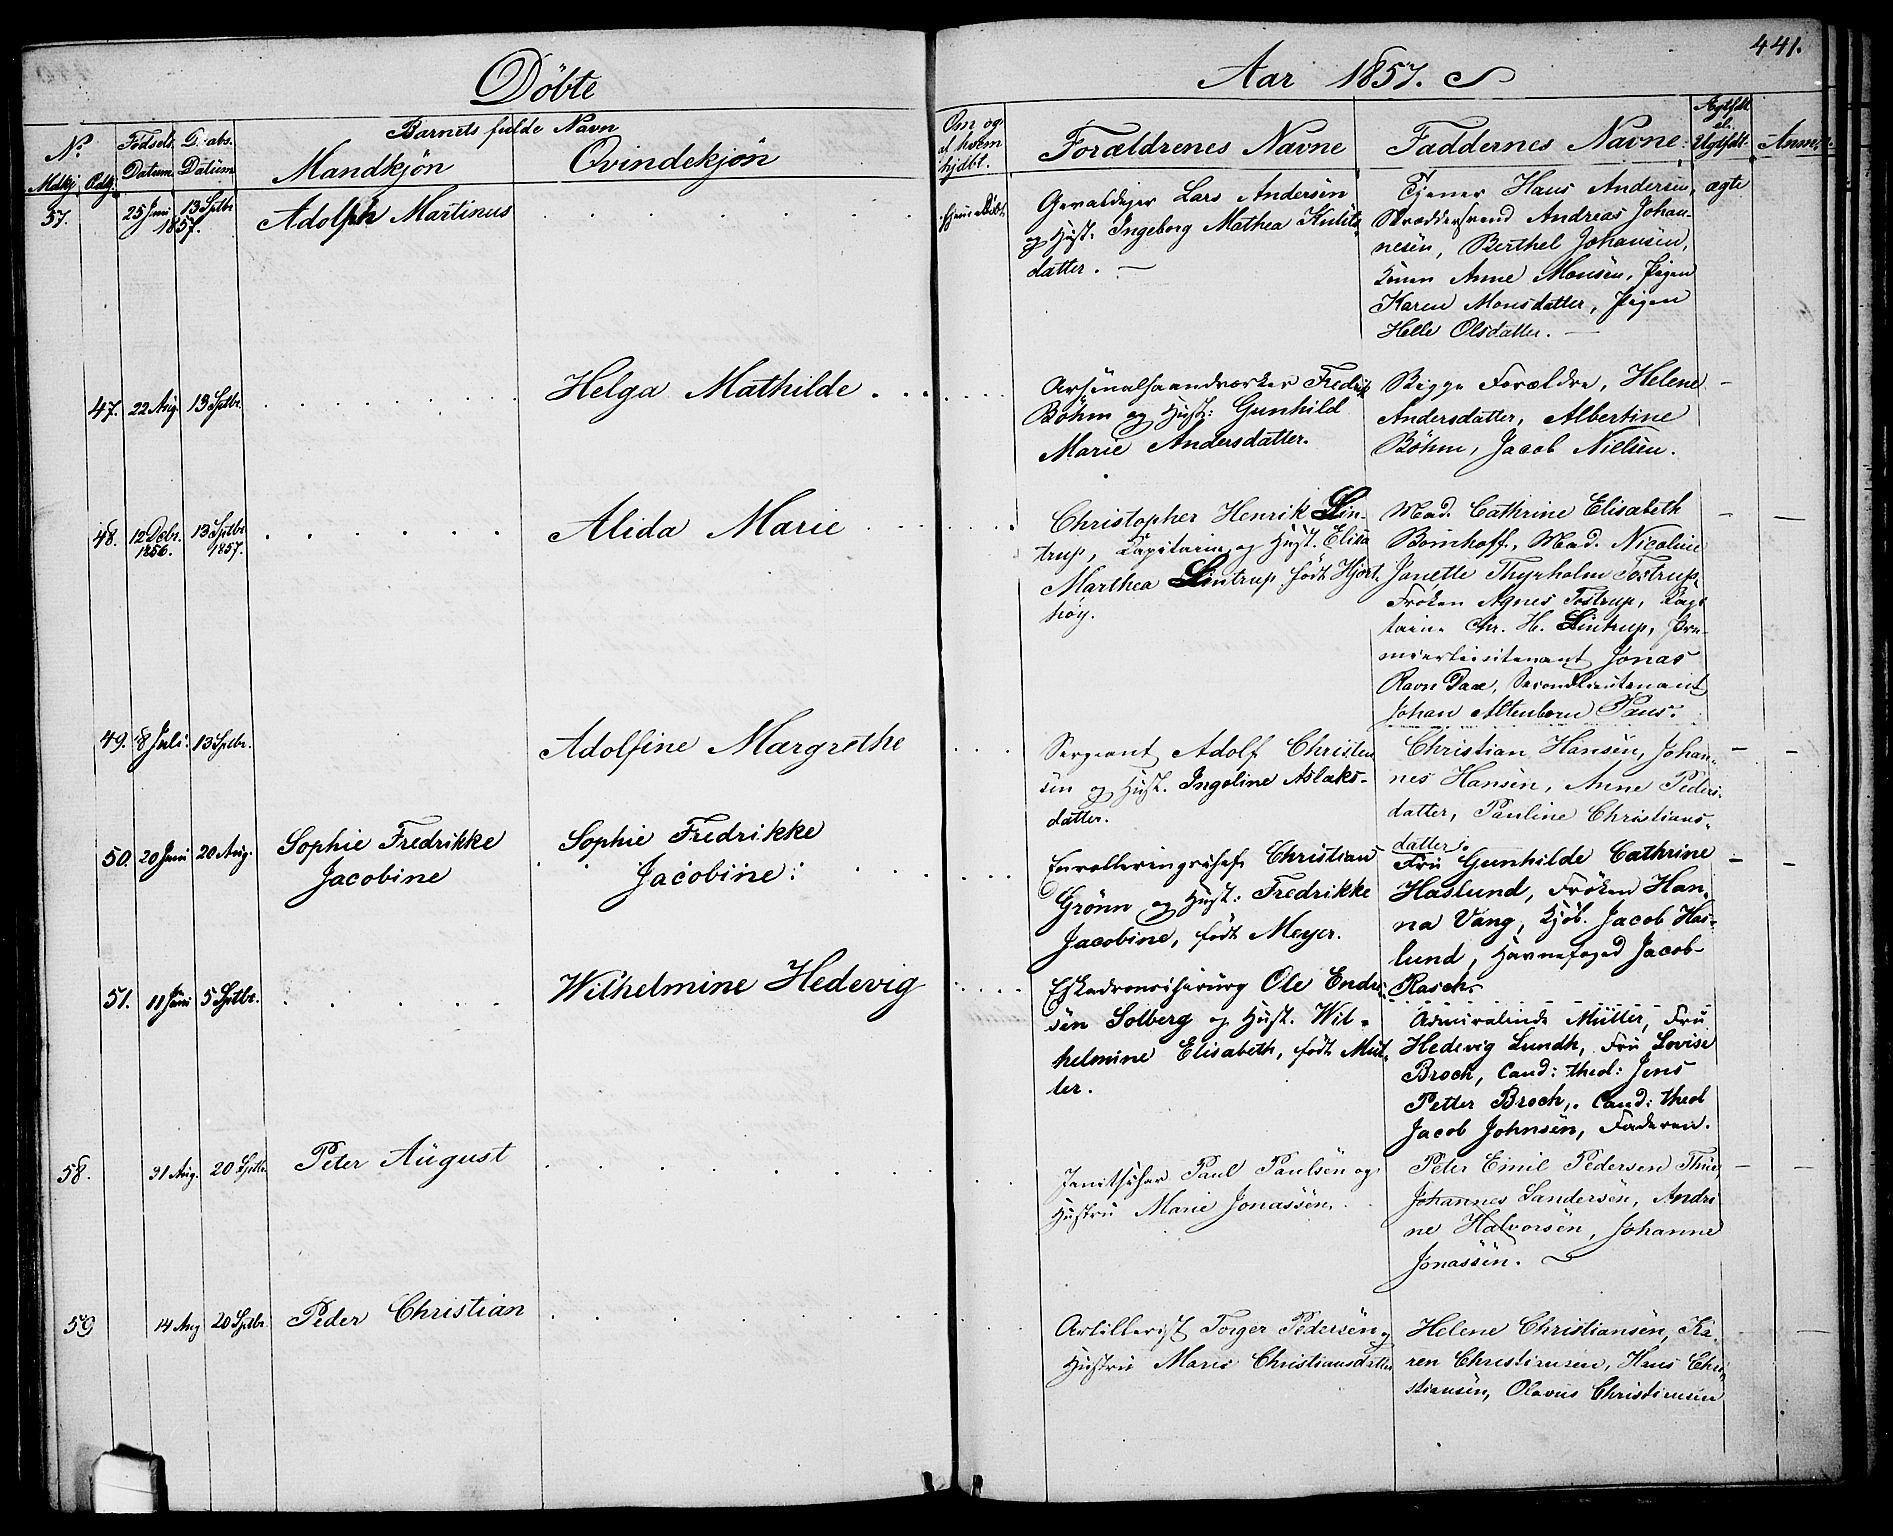 Døbte
Aar 1857.
441.
No.
Mdkj. Qvdkj.
Fødsels Datum
Daabs Datum
Barnets fulde Navn
Mandkjøn
Qvindekjøn
Om og af hvem hjdbt.
Forældrenes Navne
Faddernes Navne
Ægtefdt el. Uægtfdt.
Anm.
57. 25 Juni 13 Sptbr
1857.
Adolph Martinus
Lars Andersen
og Hust. Ingeborg Mathea
datter.
Tjener Hans Andersen,
Skræddersvend Andreas Johan-
nesen, Berthel Johansen,
Konen Anne Monsen, Pigen
Karen Monsdatter, Pigen
Helle Olsdatter.
ægte
47. 22 Aug. 13 Sptbr.
Helga Mathilde
Arsenalhaandværker Fredrik
Böhm og Hust: Gunhild
Marie Andersdatter.
Begge Forældre, Helene
Andersdatter, Albertine
Böhm, Jacob Nielsen.
48. 12 Debr. 13 Sptbr
1856. 1857.
Alida Marie
Christopher Henrik Lin-
trup, Kapitain og Hust. Elisa
Marthea Lintrup født Hjort-
høy.
Mad. Cathrine Elisabeth
Bomhoff, Mad. Nicoline
Janette Thyrholm Tostrup,
Frøken Agnes Tostrup, Kapi
tain Chr. H. Lintrup, Pre-
mierleiutenant Jonas
Ravn Daae, Secondlieutenant
Johan Altenborn Paus.
49. 8 Juli 13 Sptbr.
Adolfine Margrethe
Sergeant Adolf Christen
sen og Hust. Ingoline Aslaks-
datter.
Christian Hansen, Johan-
nes Hansen, Anne Peders-
datter, Pauline Christians-
datter.
50. 20 Juni 20 Aug.
Sophie Fredrikke
Jacobine
Sophie Fredrikke
Jacobine:
Enrolleringschef Christian
Grönn og Hust: Fredrikke
Jacobine, født Meyer.
Fru Gunhilde Cathrine
Haslund, Frøken Han-
na Vang, Kjöb. Jacob Has-
lund, Havnefoged Jacob
Rasch.
51. 11 Juni 5 Sptbr.
Wilhelmine Hedevig
Eskadronschirurg Ole Endre
sen Solberg og Hust. Wil-
helmine Elisabeth, født Mül-
ler.
Admiralinde Müller, Fru
Hedevig Lundh, Fru Lovise
Broch, Cand: theol: Jens
Petter Broch, Cand: theol
Jacob Johnsen, Faderen.
58. 31 Aug. 20 Sptbr.
Peter August
Janitschar Paul Paulsen og
Hustru Marie Jonassen.
Peter Emil Pedersen Thue,
Johannes Sandersen, Andri
ne Halvorsen, Johanne
Jonassen.
59 14 Aug 20 Sptbr.
Peder Christian
Artillerist Torger Pedersen og
Hustru Maria Christiansdatter
Helene Christiansen, Ka-
ren Christiansen, Hans Chri
stiansen, Olavus Christiansen